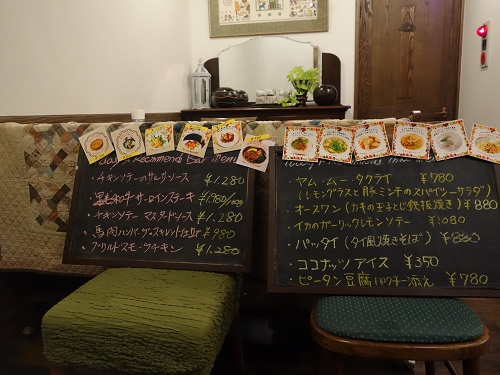 Today's Recommend Bar Menu
・チキンソテーのサルサソース ¥1.280
・黒毛和牛サーロインステーキ ¥1.980/100g
・チキンソテー マスタードソース ¥1.280
・馬肉ハンバーグ ¥980
・グリルドスモークチキン ¥1.280
・ヤム・ムー・タクライ ¥780
(レモングラスと豚ミンチのスパイシーサラダ)
・オースワン(カキの玉子とじ鉄板焼き) ¥880
・イカのガーリックレモンソテー ¥1080
・パッタイ(タイ風焼きそば) ¥880
・ココナッツアイス ¥350
・ピータン豆腐パクチー添え ¥780